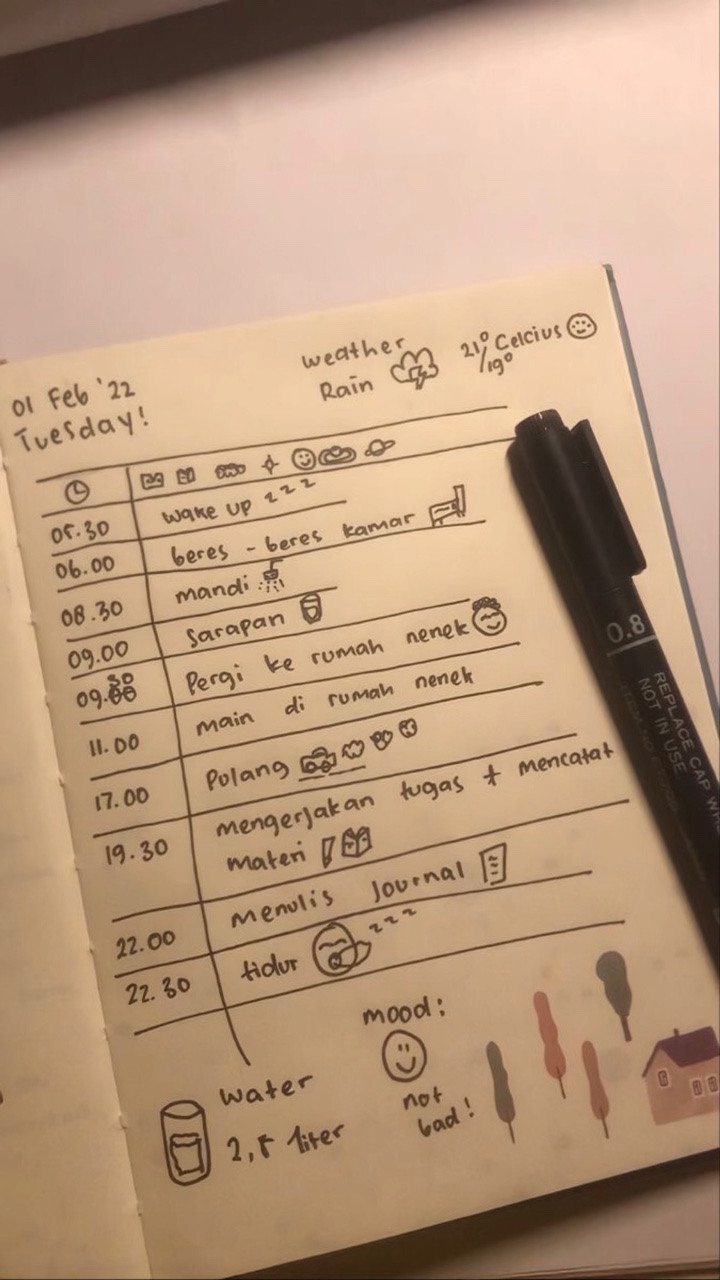 01 Feb '22
Tuesday!
weather
Rain
21°/19° Celcius
05.30 wake up z z z
06.00 beres - beres kamar
08.30 mandi
09.00 sarapan
09.30 Pergi ke rumah nenek
11.00 main di rumah nenek
17.00 Pulang
19.30 mengerjakan tugas + mencatat
materi
22.00 menulis Journal
22.30 tidur z z z
water
2,5 liter
mood:
not
bad!
0.8
REPLACE CAP WH
NOT IN USE